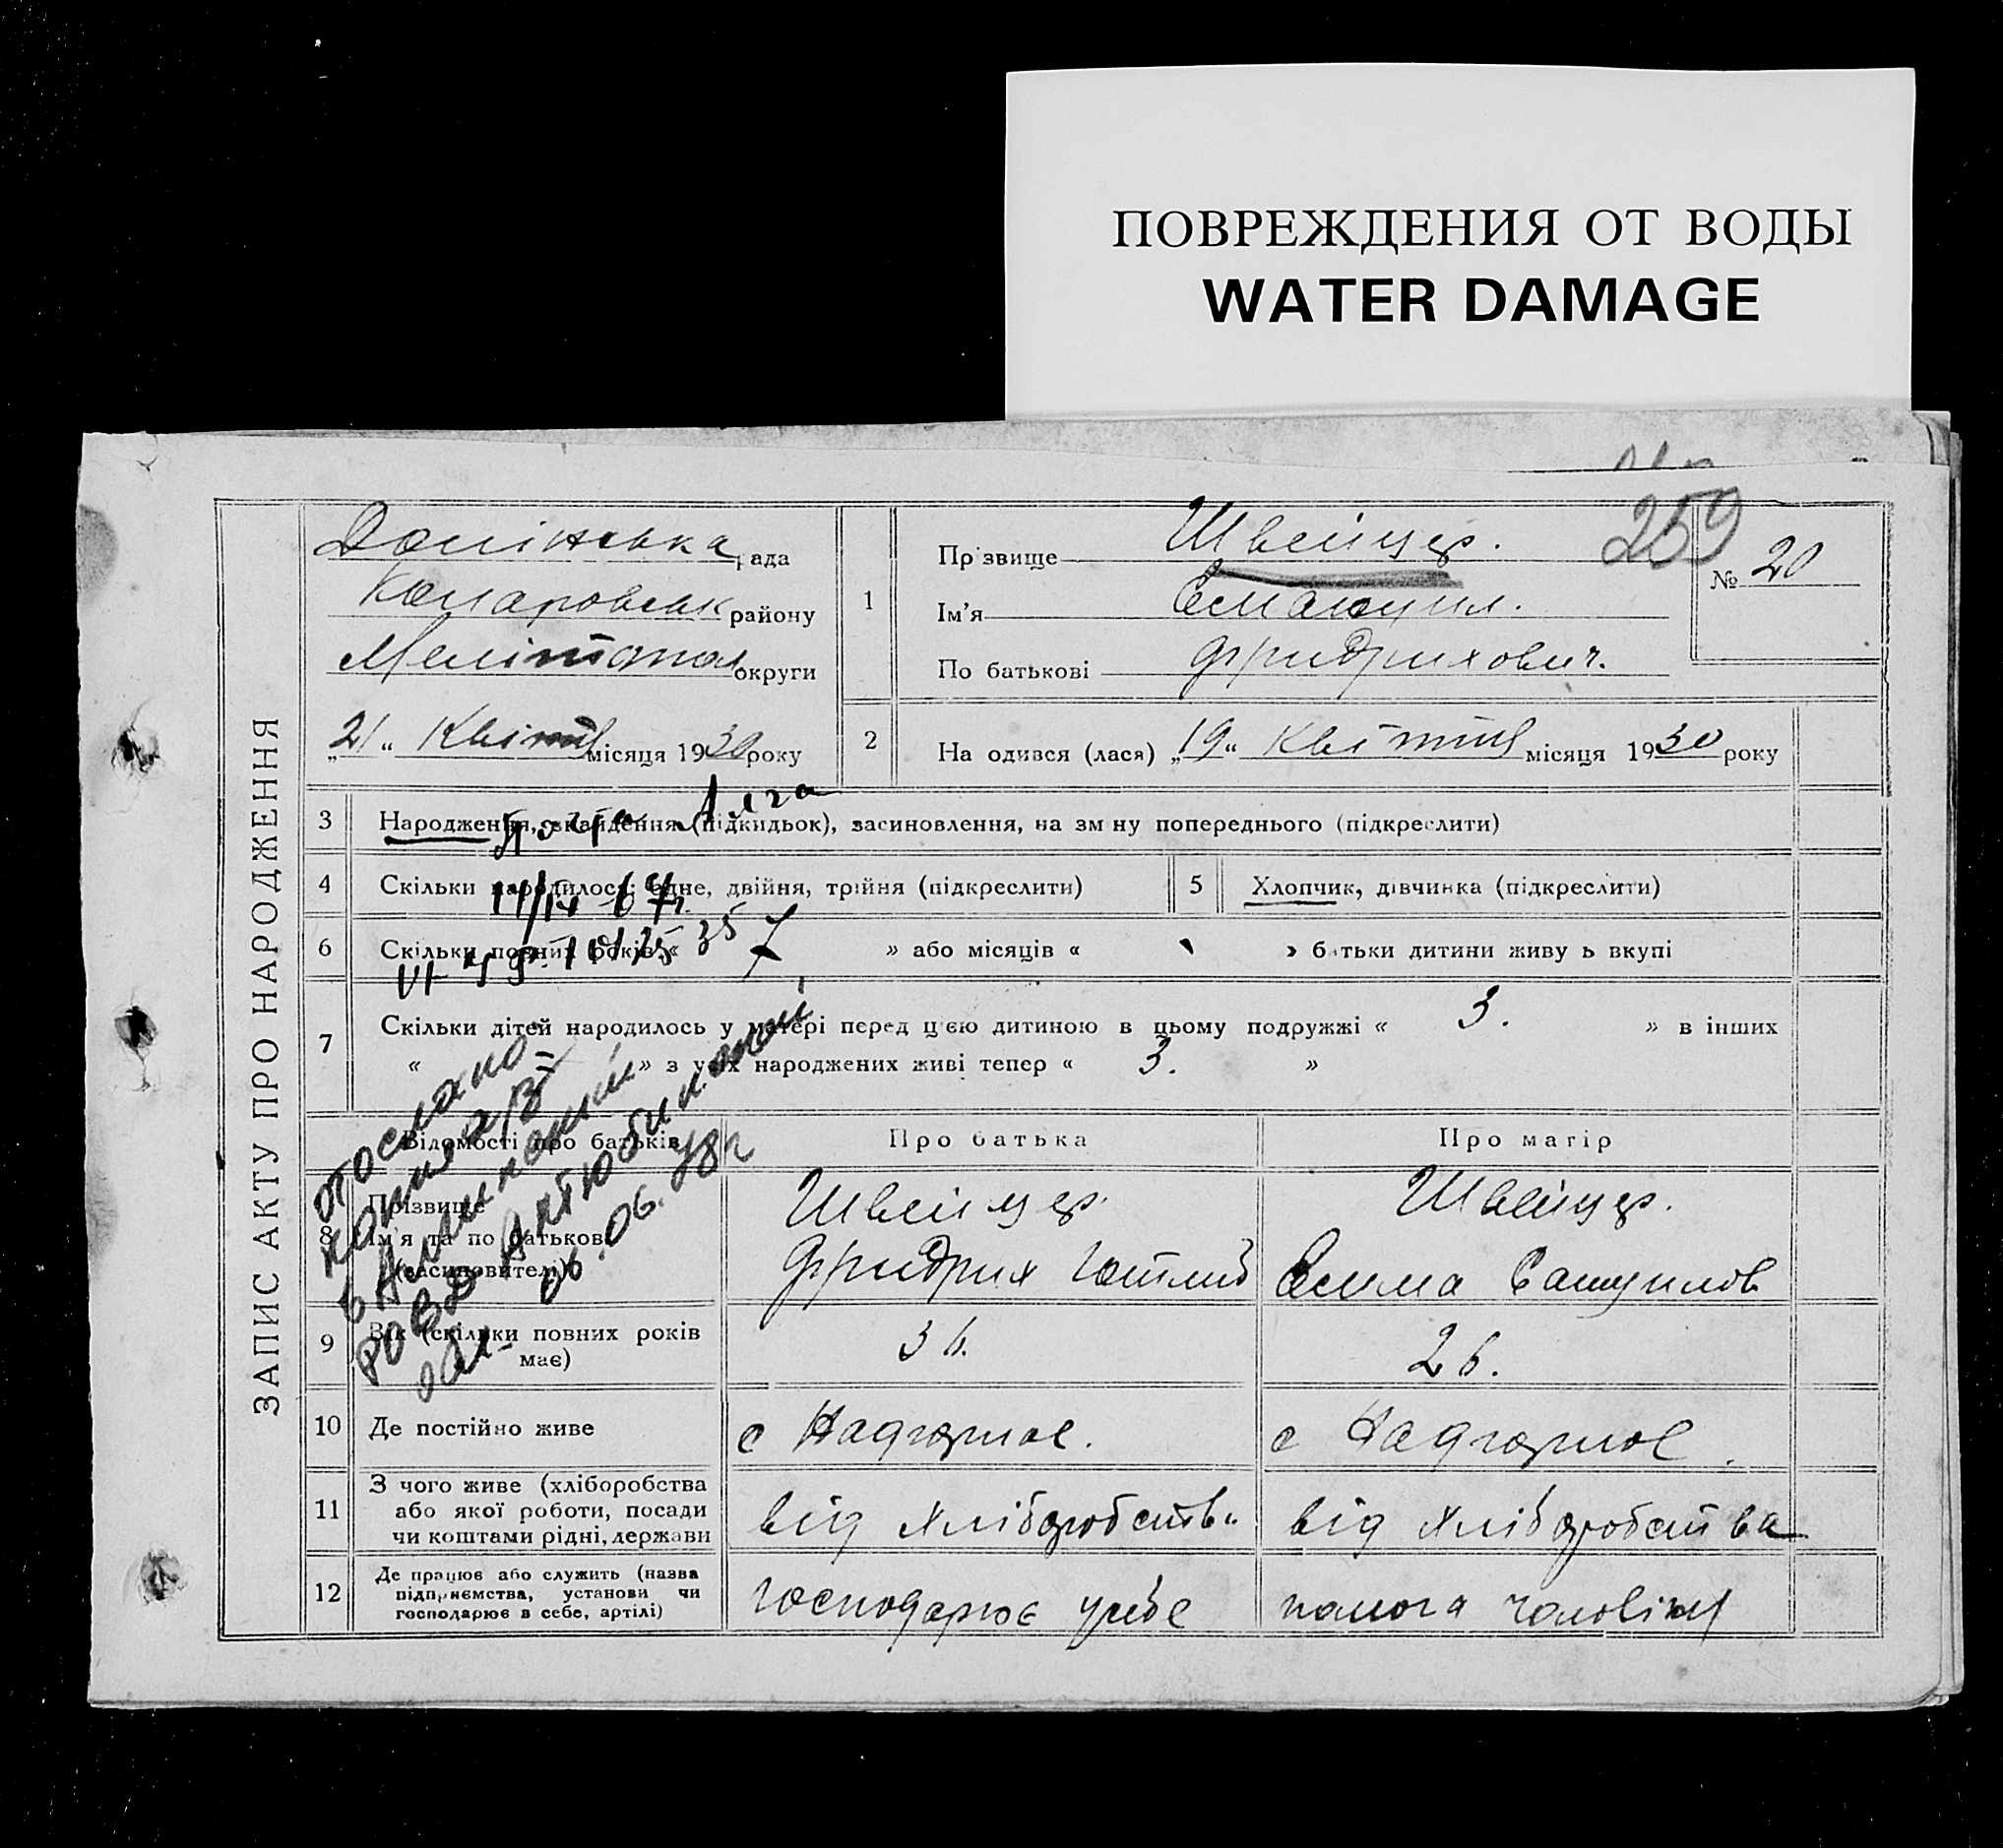 ПОВРЕЖДЕНИЯ ОТ ВОДЫ
WATER DAMAGE
259
ЗАПИС АКТУ ПРО НАРОДЖЕННЯ
Долінська рада
району
округи
„21“ Квітня місяця 1930 року
1
Пр звище Швейцер.
Ім'я Емануил.
По батькові Фридрихович.
№ 20
2 На одився (лася) „19“ Квітня місяця 1930 року
3 Народження, знайдення (підкидьок), засиновлення, на зм ну попереднього (підкреслити)
4 Скільки народилось: одне, двійня, трійня (підкреслити)
5 Хлопчик, дівчинка (підкреслити)
6 Скільки повних років « 7 » або місяців « » б тьки дитини живу ь вкупі
7 Скільки дітей народилось у матері перед цією дитиною в цьому подружжі « 3. » в інших
« » з усіх народжених живі тепер « 3. »
отослано
копия
РОВД Актюбинской
обл. 06.06.78г
Відомості про батьків
Про батька
Про матір
8 Прізвище
Ім'я та по батькові
(засиновителі)
Швейцер.
Фридрих Готлиб
Швейцер.
9 Вік (скільки повних років має)
36.
26.
10 Де постійно живе
с Надгорное.
с Надгорное.
11 З чого живе (хліборобства
або якої роботи, посади
чи коштами рідні, держави
від хліборобств
від хліборобства
12 Де працює або служить (назва
підприємства, установи чи
господарює в себе, артілі)
господарює у себе
помога чоловіку